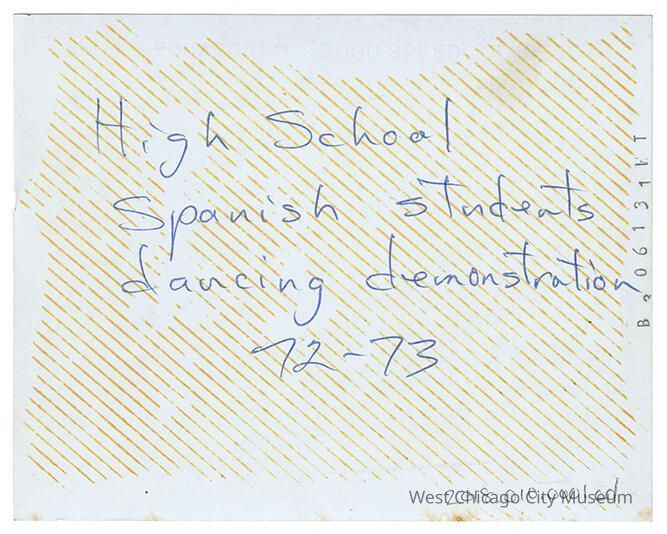 POLAROID ® 3000 SPEED
High School
Spanish students
dancing demonstration
72-73
West Chicago City Museum